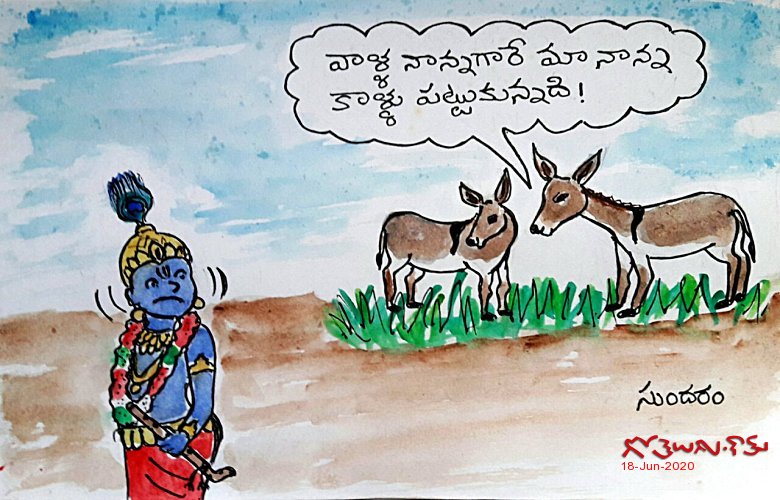 వాళ్ళ నాన్నగారే మా నాన్న
కాళ్ళు పట్టుకున్నది!
సుందరం
గోతెలుగు.కామ్
18-Jun-2020